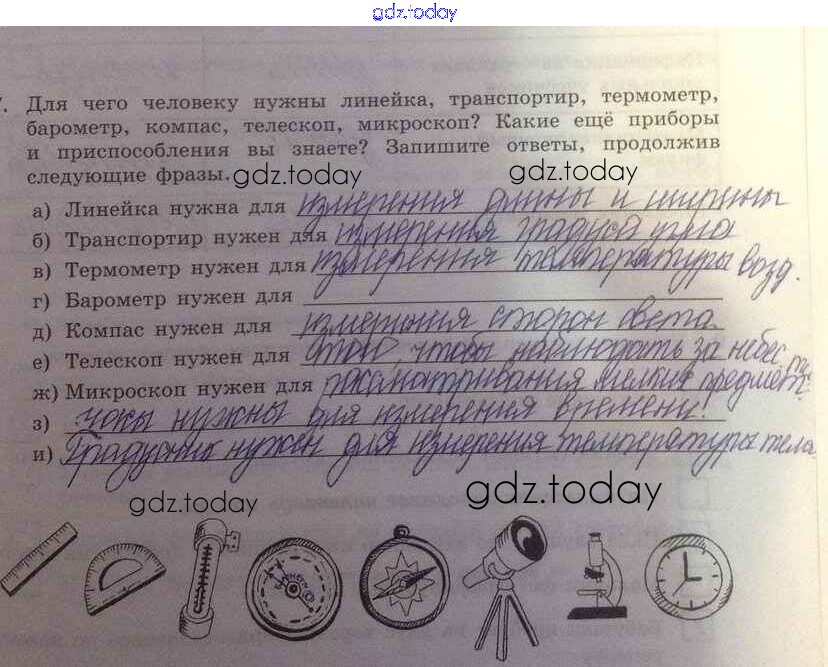 gdz.today
7. Для чего человеку нужны линейка, транспортир, термометр,
барометр, компас, телескоп, микроскоп? Какие ещё приборы
и приспособления вы знаете? Запишите ответы, продолжив
следующие фразы.
gdz.today gdz.today
а) Линейка нужна для измерения длины и ширины
б) Транспортир нужен для измерения градуса угла
в) Термометр нужен для измерения температуры возд.
г) Барометр нужен для
д) Компас нужен для измерения сторон света.
е) Телескоп нужен для того, чтобы наблюдать за небес.
ж) Микроскоп нужен для рассматривания мелких предмет.
з) Часы нужны для измерения времени.
и) Градусник нужен для измерения температуры тела
gdz.today gdz.today